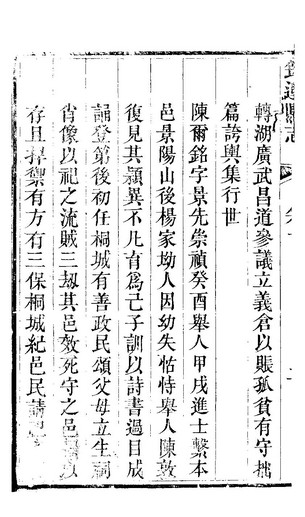 轉湖廣武昌道參議立義倉以賑孤貧有守拙
篇誇輿集行世
陳爾銘字景先崇禎癸酉舉人甲戌進士繫本
邑景陽山後楊家坳人因幼失怙恃舉人陳敦
復見其穎異不凡育為己子訓以詩書過目成
誦登第後初任桐城有善政民頌父母立生祠
肖像以祀之流賊三刼其邑效死守之邑以
存且捍禦有方有三保桐城紀邑民請